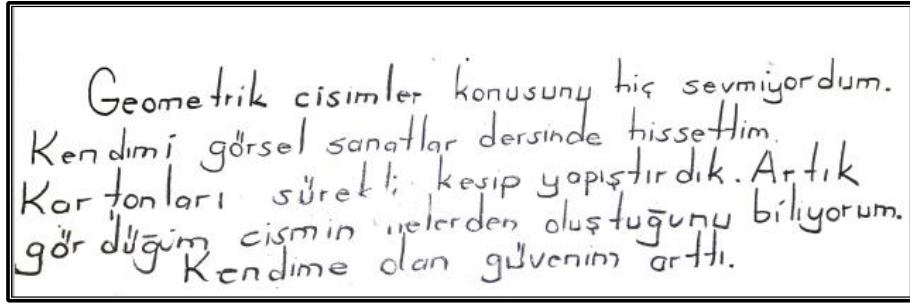 Geometrik cisimler konusunu hiç sevmiyordum.
Kendimi görsel sanatlar dersinde hissettim.
Kartonları sürekli kesip yapıştırdık. Artık
gördüğüm cismin nelerden oluştuğunu biliyorum.
Kendime olan güvenim arttı.